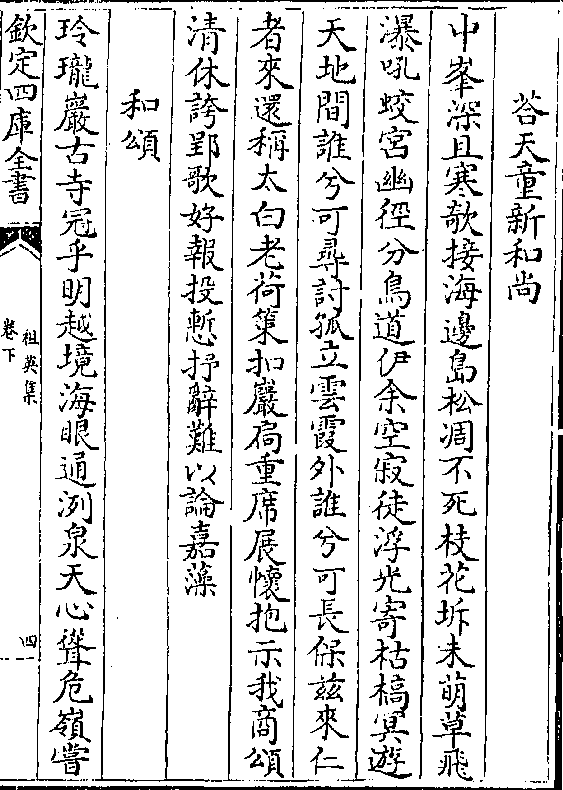 荅天童新和尚
中峯深且寒欹接海邊島松凋不死枝花坼未萌草飛
瀑吼蛟宮幽徑分鳥道伊余空寂徒浮光寄枯槁冥遊
天地間誰兮可尋討孤立雲霞外誰兮可長保兹來仁
者來還稱太白老荷策扣巖扃重席展懷抱示我商頌
清休誇郢歌好報投慙抒辭難以論嘉藻
和頌
玲瓏巖古寺冠乎明越境海眼通洌泉天心聳危嶺嘗
欽定四庫全書
祖英集
卷下
四